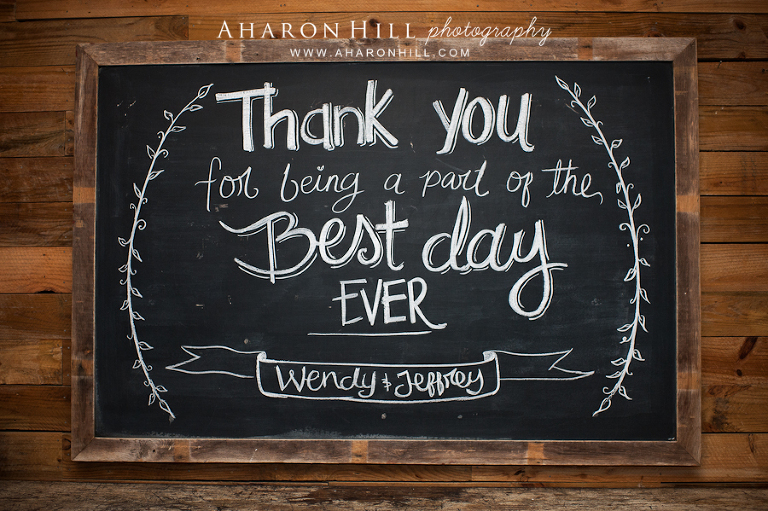 AHARON HILL photography
WWW.AHARONHILL.COM
Thank you
for being a part of the
Best day
EVER
Wendy & Jeffrey